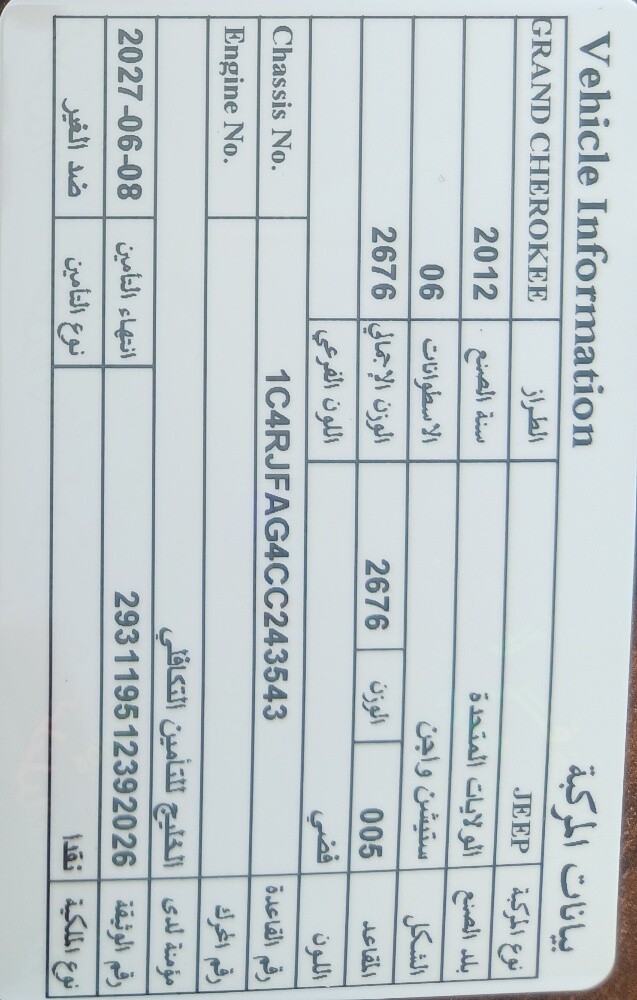 Vehicle Information بيانات المركبة
نوع المركبة JEEP الطراز GRAND CHEROKEE
بلد الصنع الولايات المتحدة سنة الصنع 2012
الشكل ستيشن واجن الاسطوانات 06
المقاعد 005 الوزن 2676 الوزن الإجمالي 2676
اللون فضي اللون الفرعي
رقم القاعدة 1C4RJFAG4CC243543 Chassis No.
رقم المحرك Engine No.
مؤمنة لدى الخليج للتأمين التكافلي
رقم الوثيقة 293119512392026 انتهاء التأمين 2027-06-08
نوع الملكية نقدا نوع التأمين ضد الغير